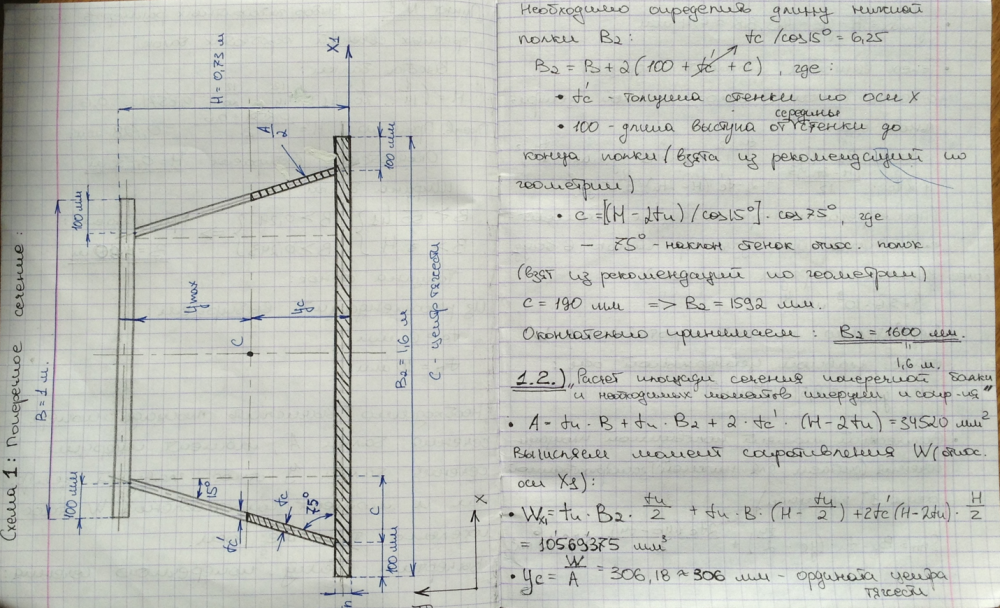 Схема 1: Поперечное сечение:
B = 1 м.
100 мм
100 мм
H = 0,73 м
X1
A/2
yмax
yc
C
15°
tc'
tc
75°
c
100 мм
100 мм
B2 = 1,6 м
C - центр тяжести
X
Необходимо определить длину нижней
полки B2:
tc /cos15° = 6,25
B2 = B + 2(100 + tc' + c) , где:
• tc' - толщина стенки по оси X
• 100 - длина выступа от середины стенки до
конца полки (взята из рекомендаций по
геометрии)
• c = [(H - 2tп) / cos15°] · cos75°, где
- 75° - наклон стенок относ. полок
(взят из рекомендаций по геометрии)
c = 190 мм => B2 = 1592 мм.
Окончательно принимаем: B2 = 1600 мм.
1,6 м.
1.2.) „Расчет площади сечения поперечной балки
и необходимых моментов инерции и сопр-ия"
• A = tп · B + tп · B2 + 2 · tc' · (H - 2tп) = 34520 мм²
Вычисляем момент сопротивления W (относ.
оси X1):
• Wx1 = tп · B2 · tп/2 + tп · B · (H - tп/2) + 2tc'(H - 2tп) · H/2
= 10569375 мм³
• yc = W/A = 306,18 ≈ 306 мм - ордината центра
тяжести